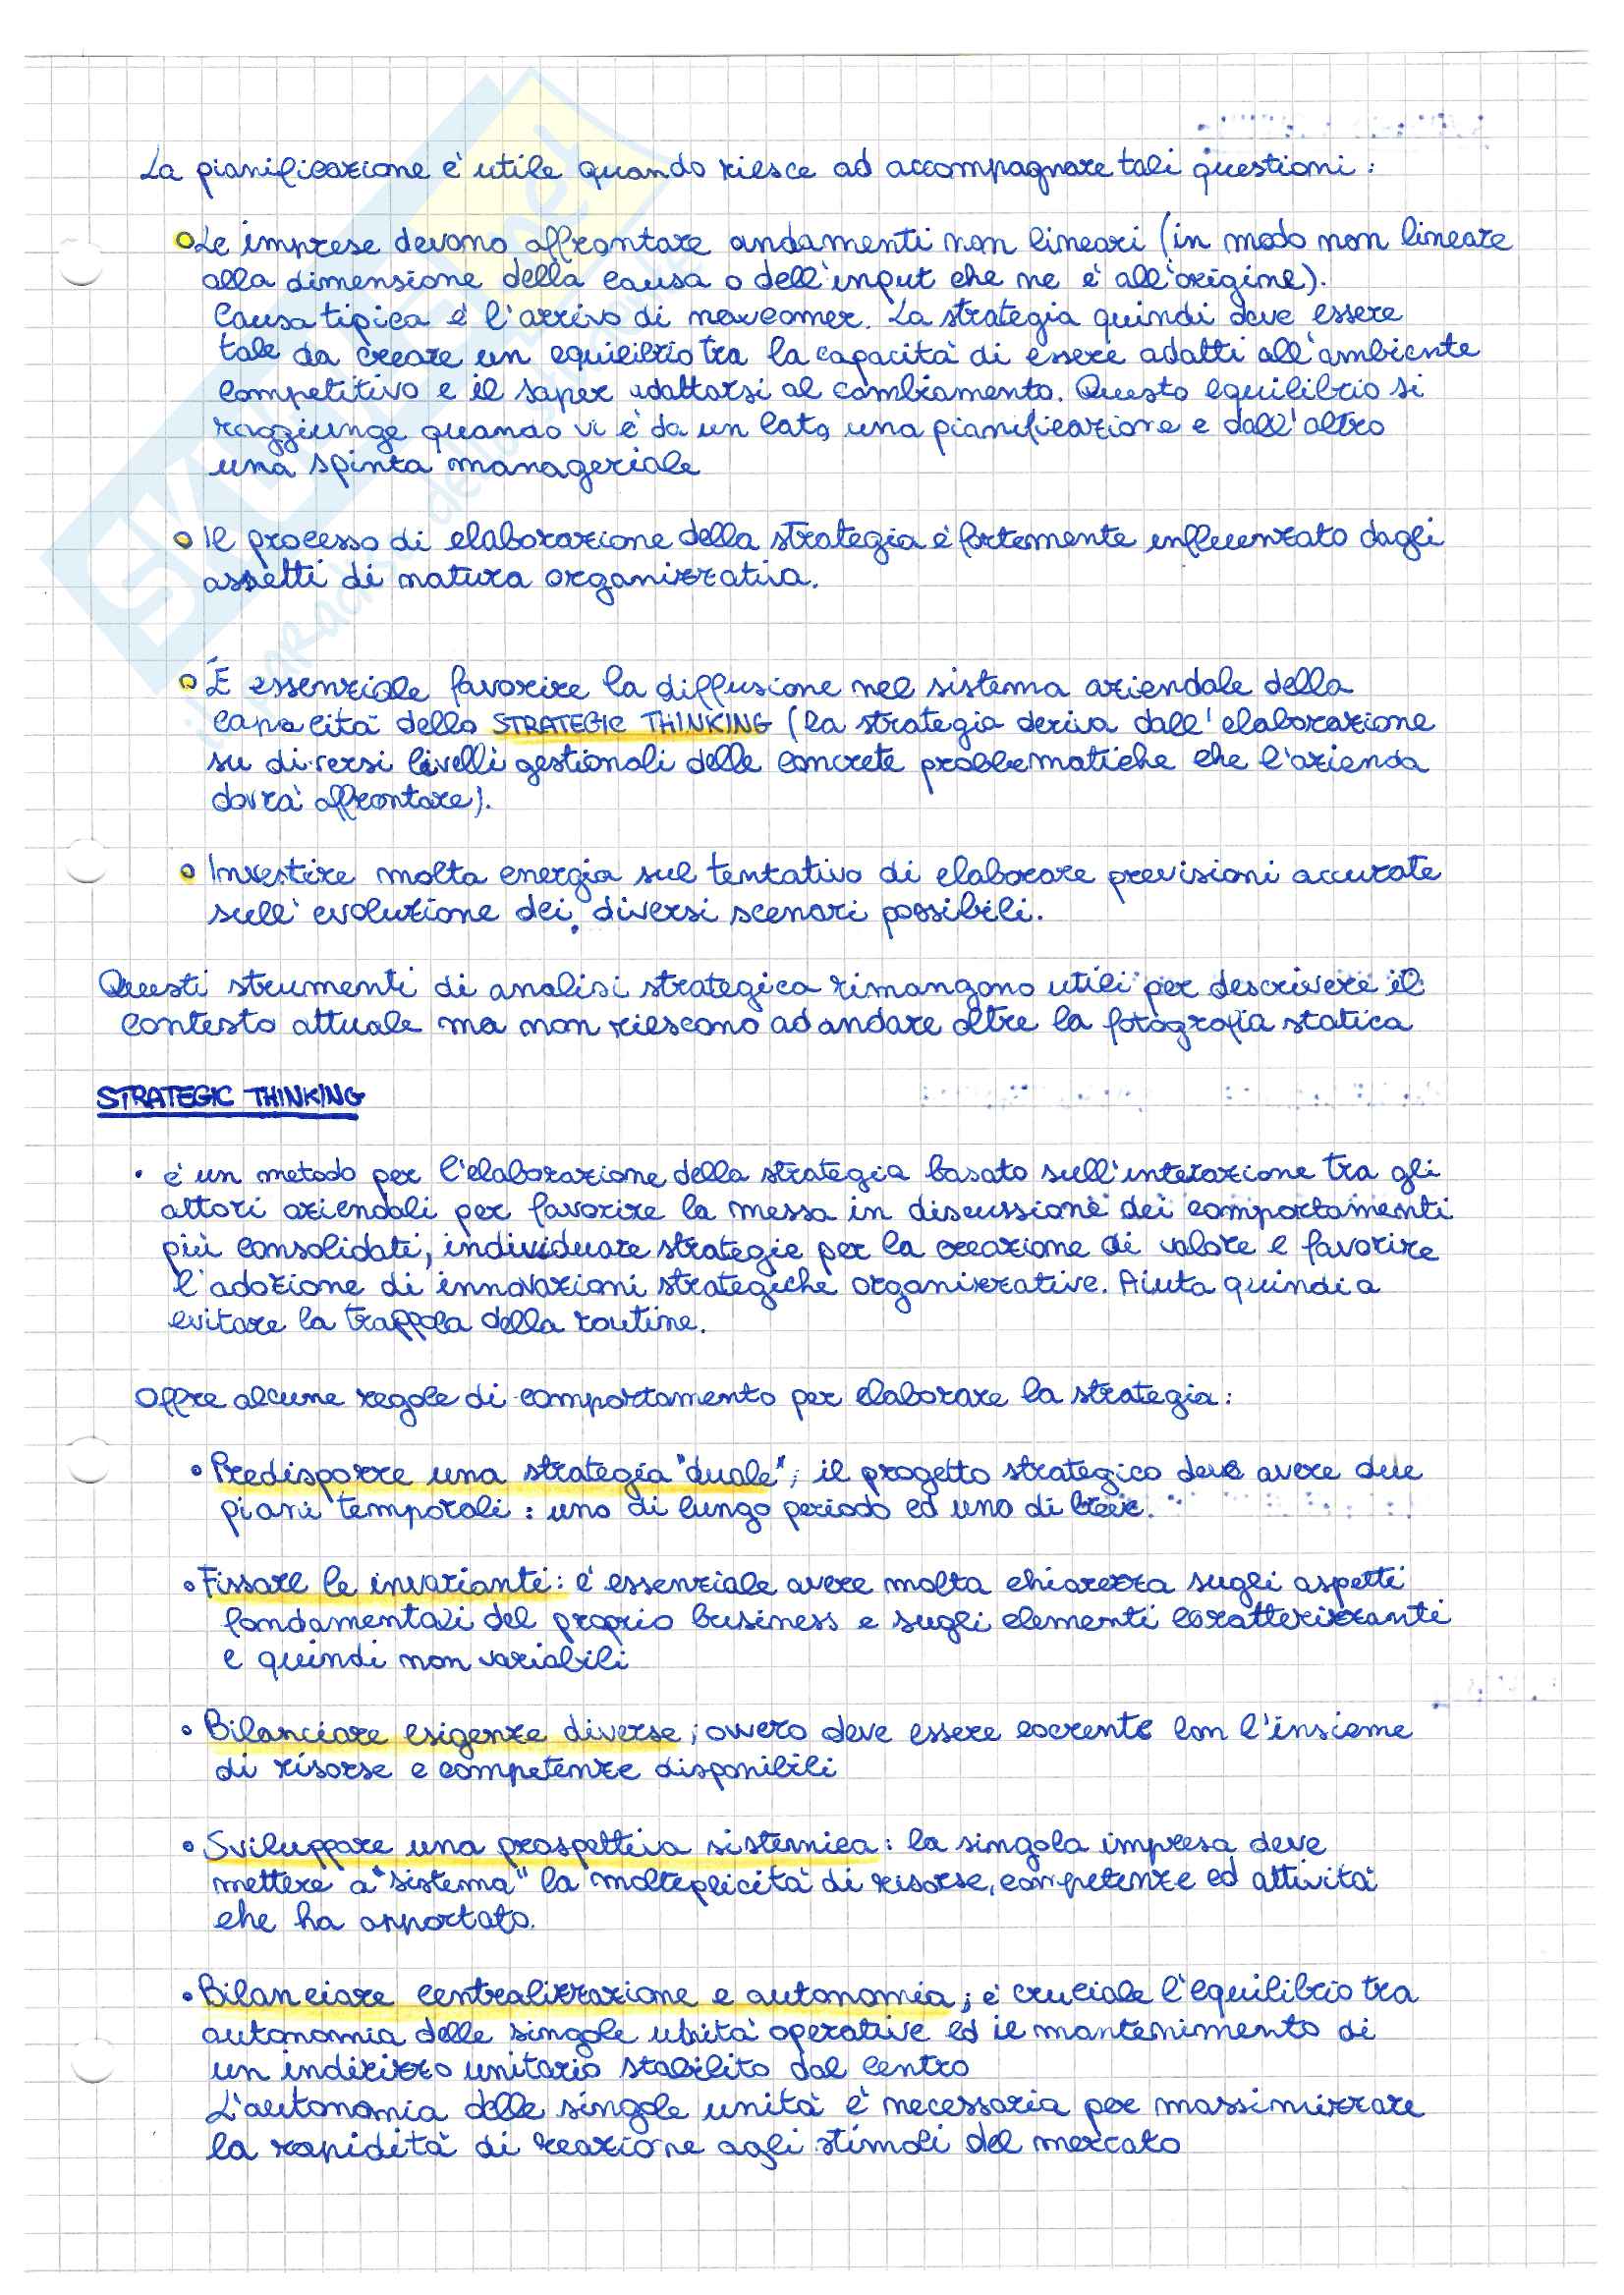 La pianificazione è utile quando riesce ad accompagnare tali questioni:
Le imprese devono affrontare andamenti non lineari (in modo non lineare
alla dimensione della causa o dell'input che ne è all'origine).
Causa tipica è l'arrivo di newcomer. La strategia quindi deve essere
tale da creare un equilibrio tra la capacità di essere adatti all'ambiente
competitivo e il saper adattarsi al cambiamento. Questo equilibrio si
raggiunge quando vi è da un lato una pianificazione e dall'altro
una spinta manageriale
Il processo di elaborazione della strategia è fortemente influenzato dagli
assetti di natura organizzativa.
È essenziale favorire la diffusione nel sistema aziendale della
capacità dello STRATEGIC THINKING (la strategia deriva dall'elaborazione
su diversi livelli gestionali delle concrete problematiche che l'azienda
dovrà affrontare).
Investire molta energia sul tentativo di elaborare previsioni accurate
sull'evoluzione dei diversi scenari possibili.
Questi strumenti di analisi strategica rimangono utili per descrivere il
contesto attuale ma non riescono ad andare oltre la fotografia statica
STRATEGIC THINKING
• è un metodo per l'elaborazione della strategia basato sull'interazione tra gli
attori aziendali per favorire la messa in discussione dei comportamenti
più consolidati, individuare strategie per la creazione di valore e favorire
l'adozione di innovazioni strategiche organizzative. Aiuta quindi a
evitare la trappola della routine.
Offre alcune regole di comportamento per elaborare la strategia:
• Predisporre una strategia "duale"; il progetto strategico deve avere due
piani temporali: uno di lungo periodo ed uno di breve.
• Fissare le invarianti: è essenziale avere molta chiarezza sugli aspetti
fondamentali del proprio business e sugli elementi caratterizzanti
e quindi non variabili
• Bilanciare esigenze diverse; ovvero deve essere coerente con l'insieme
di risorse e competenze disponibili
• Sviluppare una prospettiva sistemica: la singola impresa deve
mettere a "sistema" la molteplicità di risorse, competenze ed attività
che ha apportato.
• Bilanciare centralizzazione e autonomia; è cruciale l'equilibrio tra
autonomia delle singole unità operative ed il mantenimento di
un indirizzo unitario stabilito dal centro
L'autonomia delle singole unità è necessaria per massimizzare
la rapidità di reazione agli stimoli del mercato